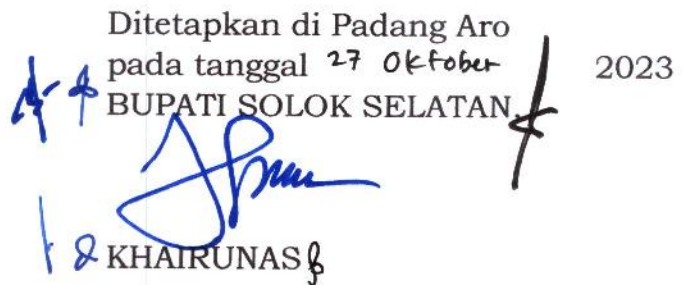 Ditetapkan di Padang Aro
pada tanggal 27 Oktober 2023
BUPATI SOLOK SELATAN,
KHAIRUNAS